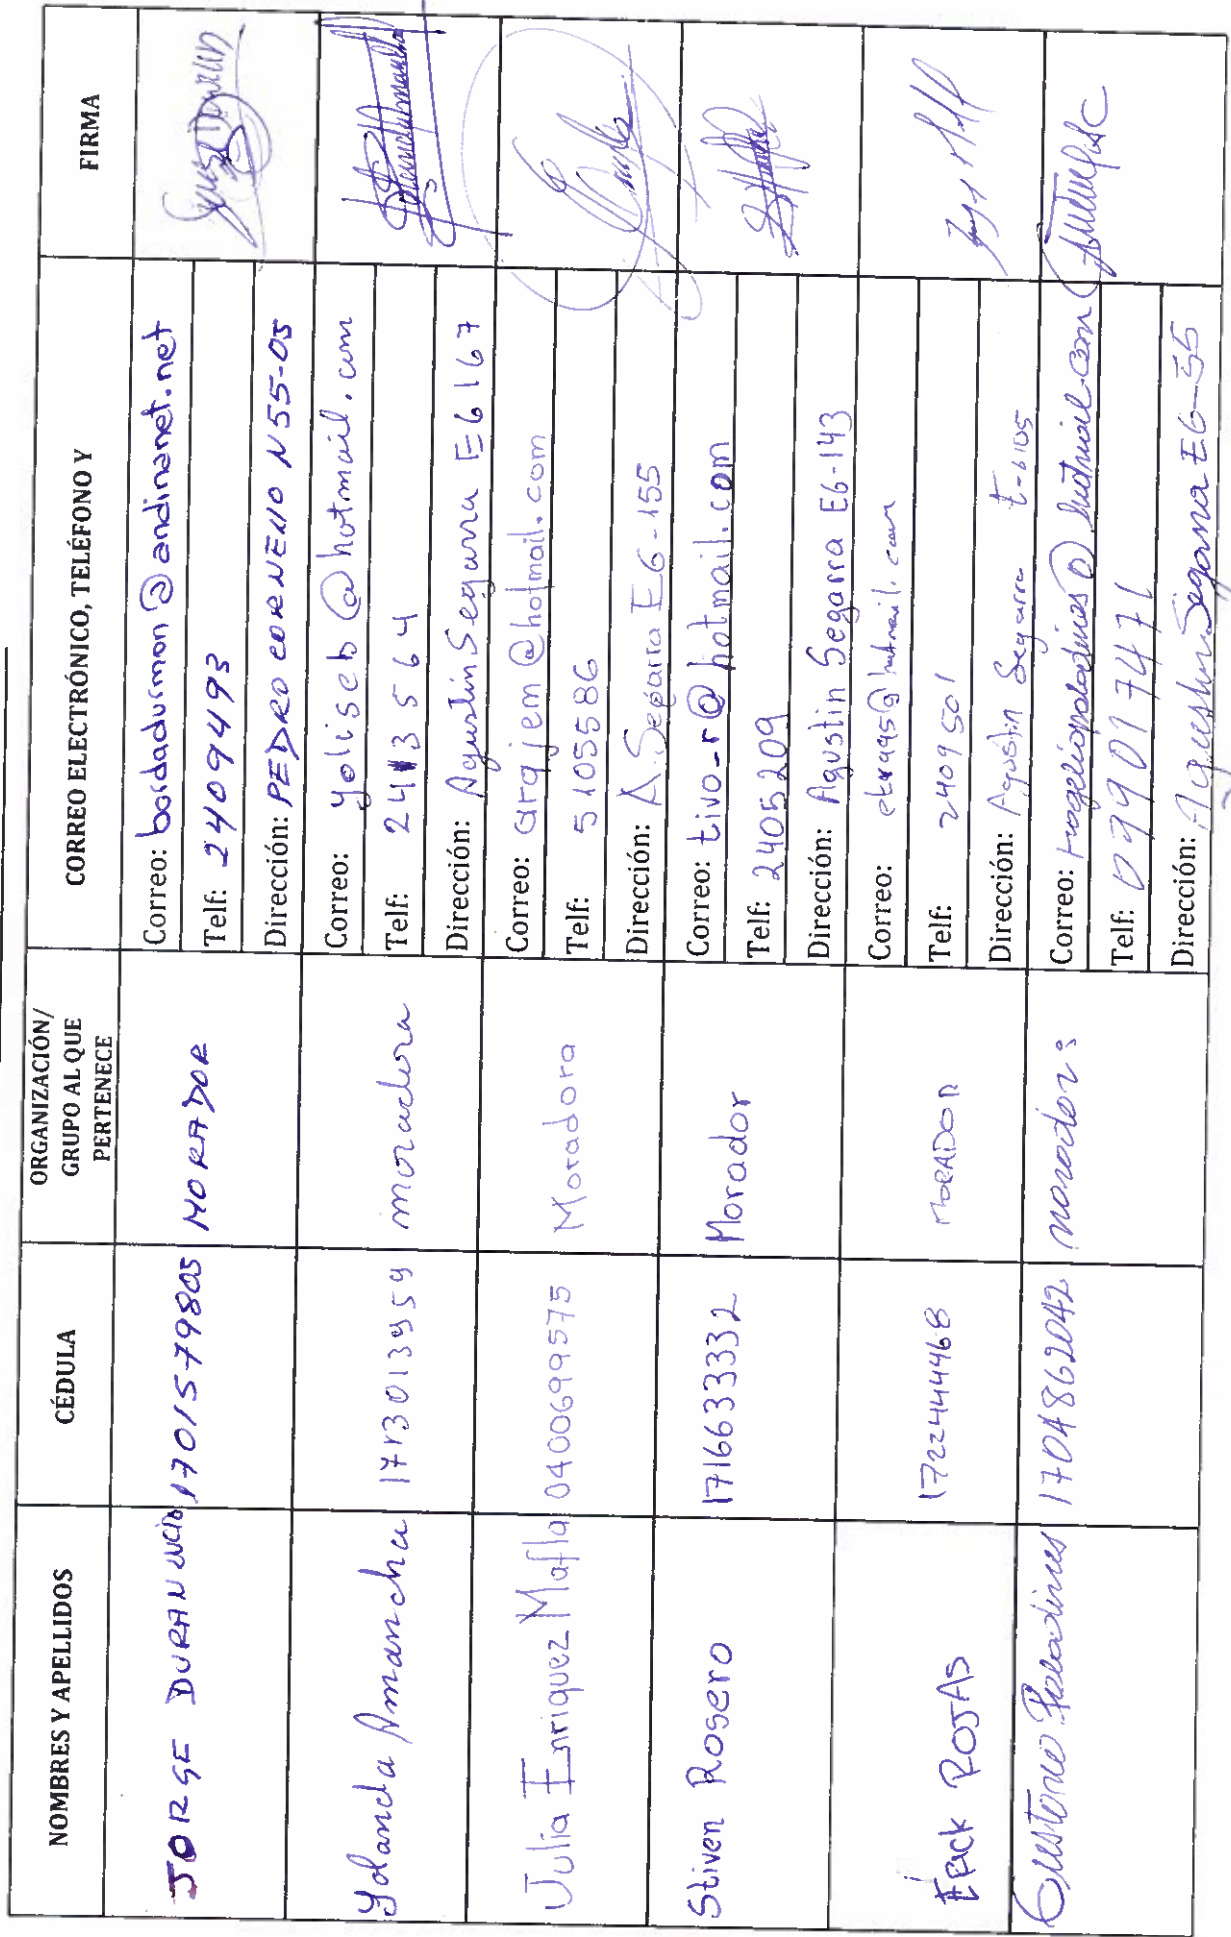 NOMBRES Y APELLIDOS
CÉDULA
ORGANIZACIÓN/
GRUPO AL QUE
PERTENECE
CORREO ELECTRÓNICO, TELÉFONO Y
FIRMA
JORGE DURAN
1701579805
MORADOR
Correo: bordadurmon@andinanet.net
Telf: 2409493
Dirección: PEDRO CORNEJIO N55-05
Yolanda Amancha
1713013959
moradora
Correo: yoliseb@hotmail.com
Telf: 2413564
Dirección: Agustin Segarra E6167
Julia Enriquez Mafla
0400699575
Moradora
Correo: arqjem@hotmail.com
Telf: 5105586
Dirección: A. Segarra E6-155
Stiven Rosero
1716633332
Morador
Correo: tivo-r@hotmail.com
Telf: 2405209
Dirección: Agustin Segarra E6-143
Erick ROJAS
1722444468
MORADOR
Correo: @hotmail.com
Telf: 2409501
Dirección: Agustin Segarra E-6105
Paladines
1704862042
morador
Correo: rogeliopaladines@hotmail.com
Telf: 099017471
Dirección: Agustin Segarra E6-55